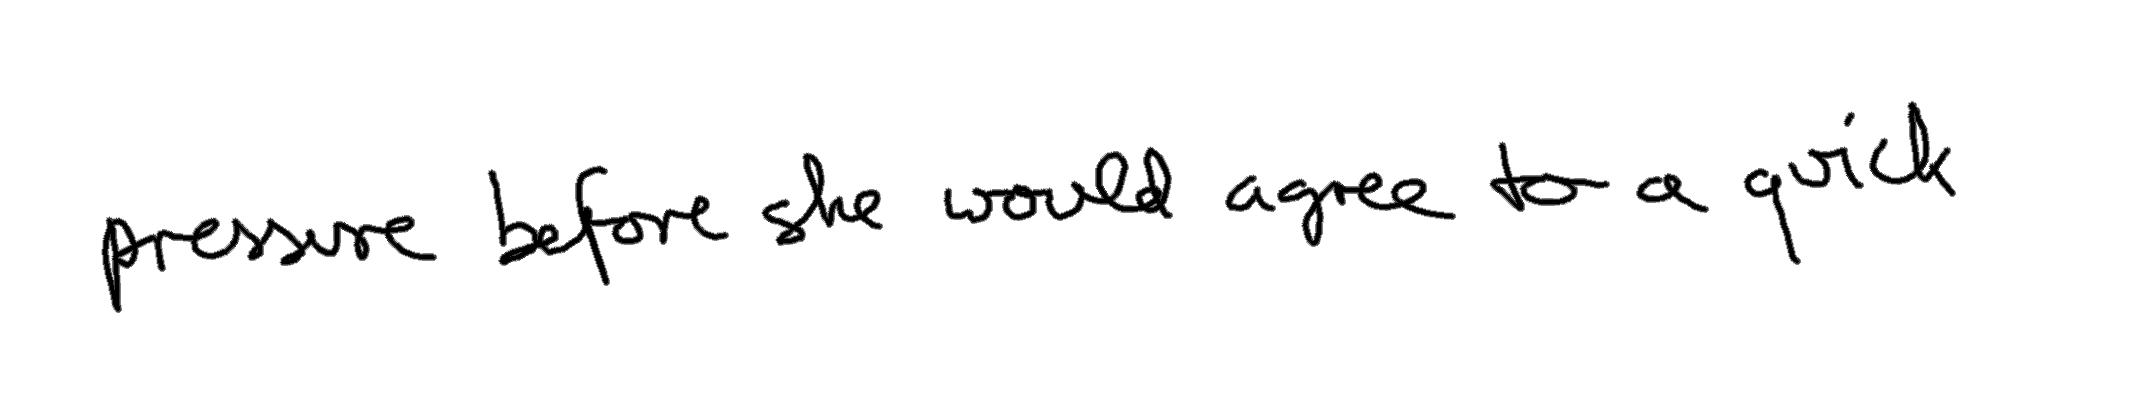 pressure before she would agree to a quick